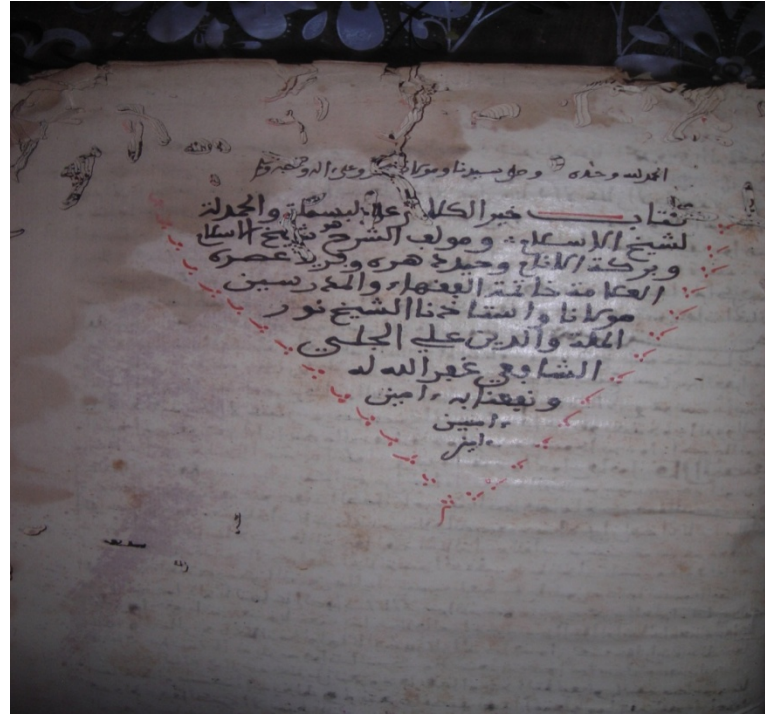 الحمد لله وحده وصلى سيدنا ومولانا محمد وعلى اله وصحبه وسلم
كتاب خير الكلام على البسملة والحمدلة
لشيخ الاسلام ومولف الشرح شيخ الاسلام
وبركة الانام وحيد دهره وفريد عصره
العلامة خاتمة الفقهاء والمدرسين
مولانا واستاذنا الشيخ نور
الملة والدين علي الحلبي
الشافعي غفر الله له
ونفعنا به ءامين
ءامين
ءامين